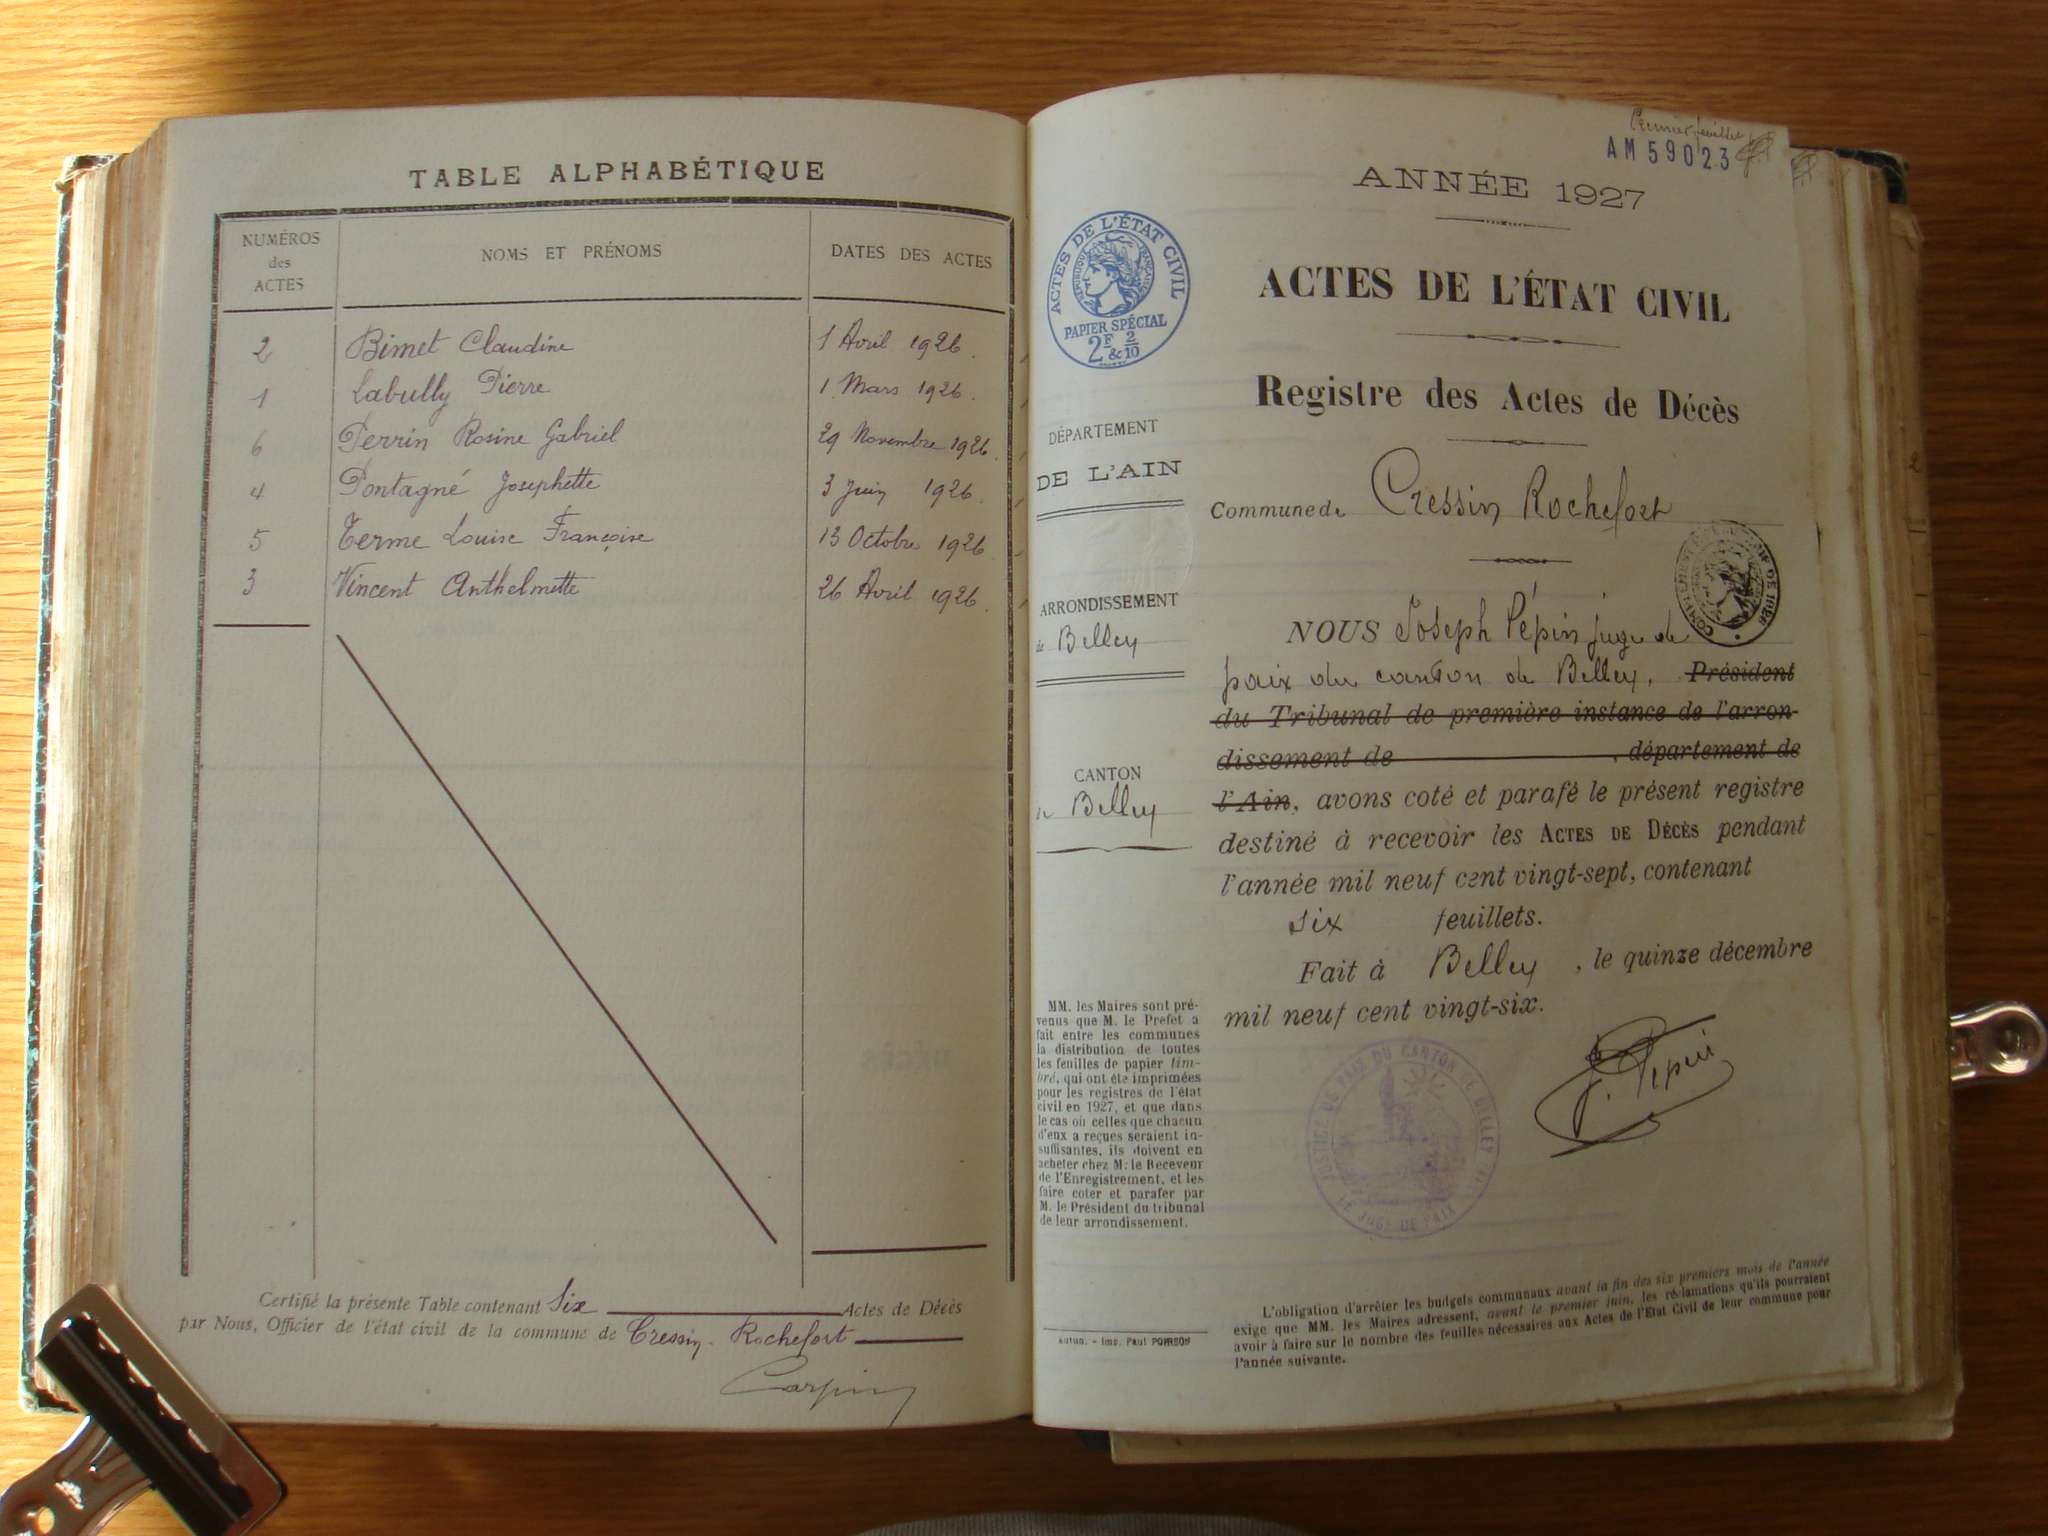 TABLE ALPHABÉTIQUE
NUMÉROS des ACTES
NOMS ET PRÉNOMS
DATES DES ACTES
2 Bimet Claudine 1 Avril 1926.
1 Labully Pierre 1 Mars 1926.
6 Perrin Rosine Gabriel 29 Novembre 1926.
4 Pontagné Josephette 3 Juin 1926.
5 Terme Louise Françoise 13 Octobre 1926
3 Vincent Anthelmette 26 Avril 1926.
Certifié la présente Table contenant Six Actes de Décès
par Nous, Officier de l'état civil de la commune de Cressin-Rochefort
Carpin
Premier feuillet
AM 59023
ANNÉE 1927
ACTES DE L'ÉTAT CIVIL
RÉPUBLIQUE FRANÇAISE
PAPIER SPÉCIAL
2F & 2/10
ACTES DE L'ÉTAT CIVIL
Registre des Actes de Décès
DÉPARTEMENT
DE L'AIN
Commune de Cressin Rochefort
ARRONDISSEMENT
de Belley
CANTON
de Belley
NOUS Joseph Pépin juge de
paix du canton de Belley, Président
du Tribunal de première instance de l'arron-
dissement de , département de
l'Ain, avons coté et parafé le présent registre
destiné à recevoir les ACTES DE DÉCÈS pendant
l'année mil neuf cent vingt-sept, contenant
six feuillets.
Fait à Belley, le quinze décembre
mil neuf cent vingt-six.
J. Pépin
JUSTICE DE PAIX DU CANTON DE BELLEY
LE JUGE DE PAIX
MM. les Maires sont pré-
venus que M. le Prefet a
fait entre les communes
la distribution de toutes
les feuilles de papier tim-
bré, qui ont été imprimées
pour les registres de l'état
civil en 1927, et que dans
le cas où celles que chacun
d'eux a reçues seraient in-
suffisantes, ils doivent en
acheter chez M. le Receveur
de l'Enregistrement, et les
faire coter et parafer par
M. le Président du tribunal
de leur arrondissement.
Autun. - Imp. Paul POIRSON
L'obligation d'arrêter les budgets communaux avant la fin des six premiers mois de l'année
exige que MM. les Maires adressent, avant le premier juin, les réclamations qu'ils pourraient
avoir à faire sur le nombre des feuilles nécessaires aux Actes de l'Etat Civil de leur commune pour
l'année suivante.